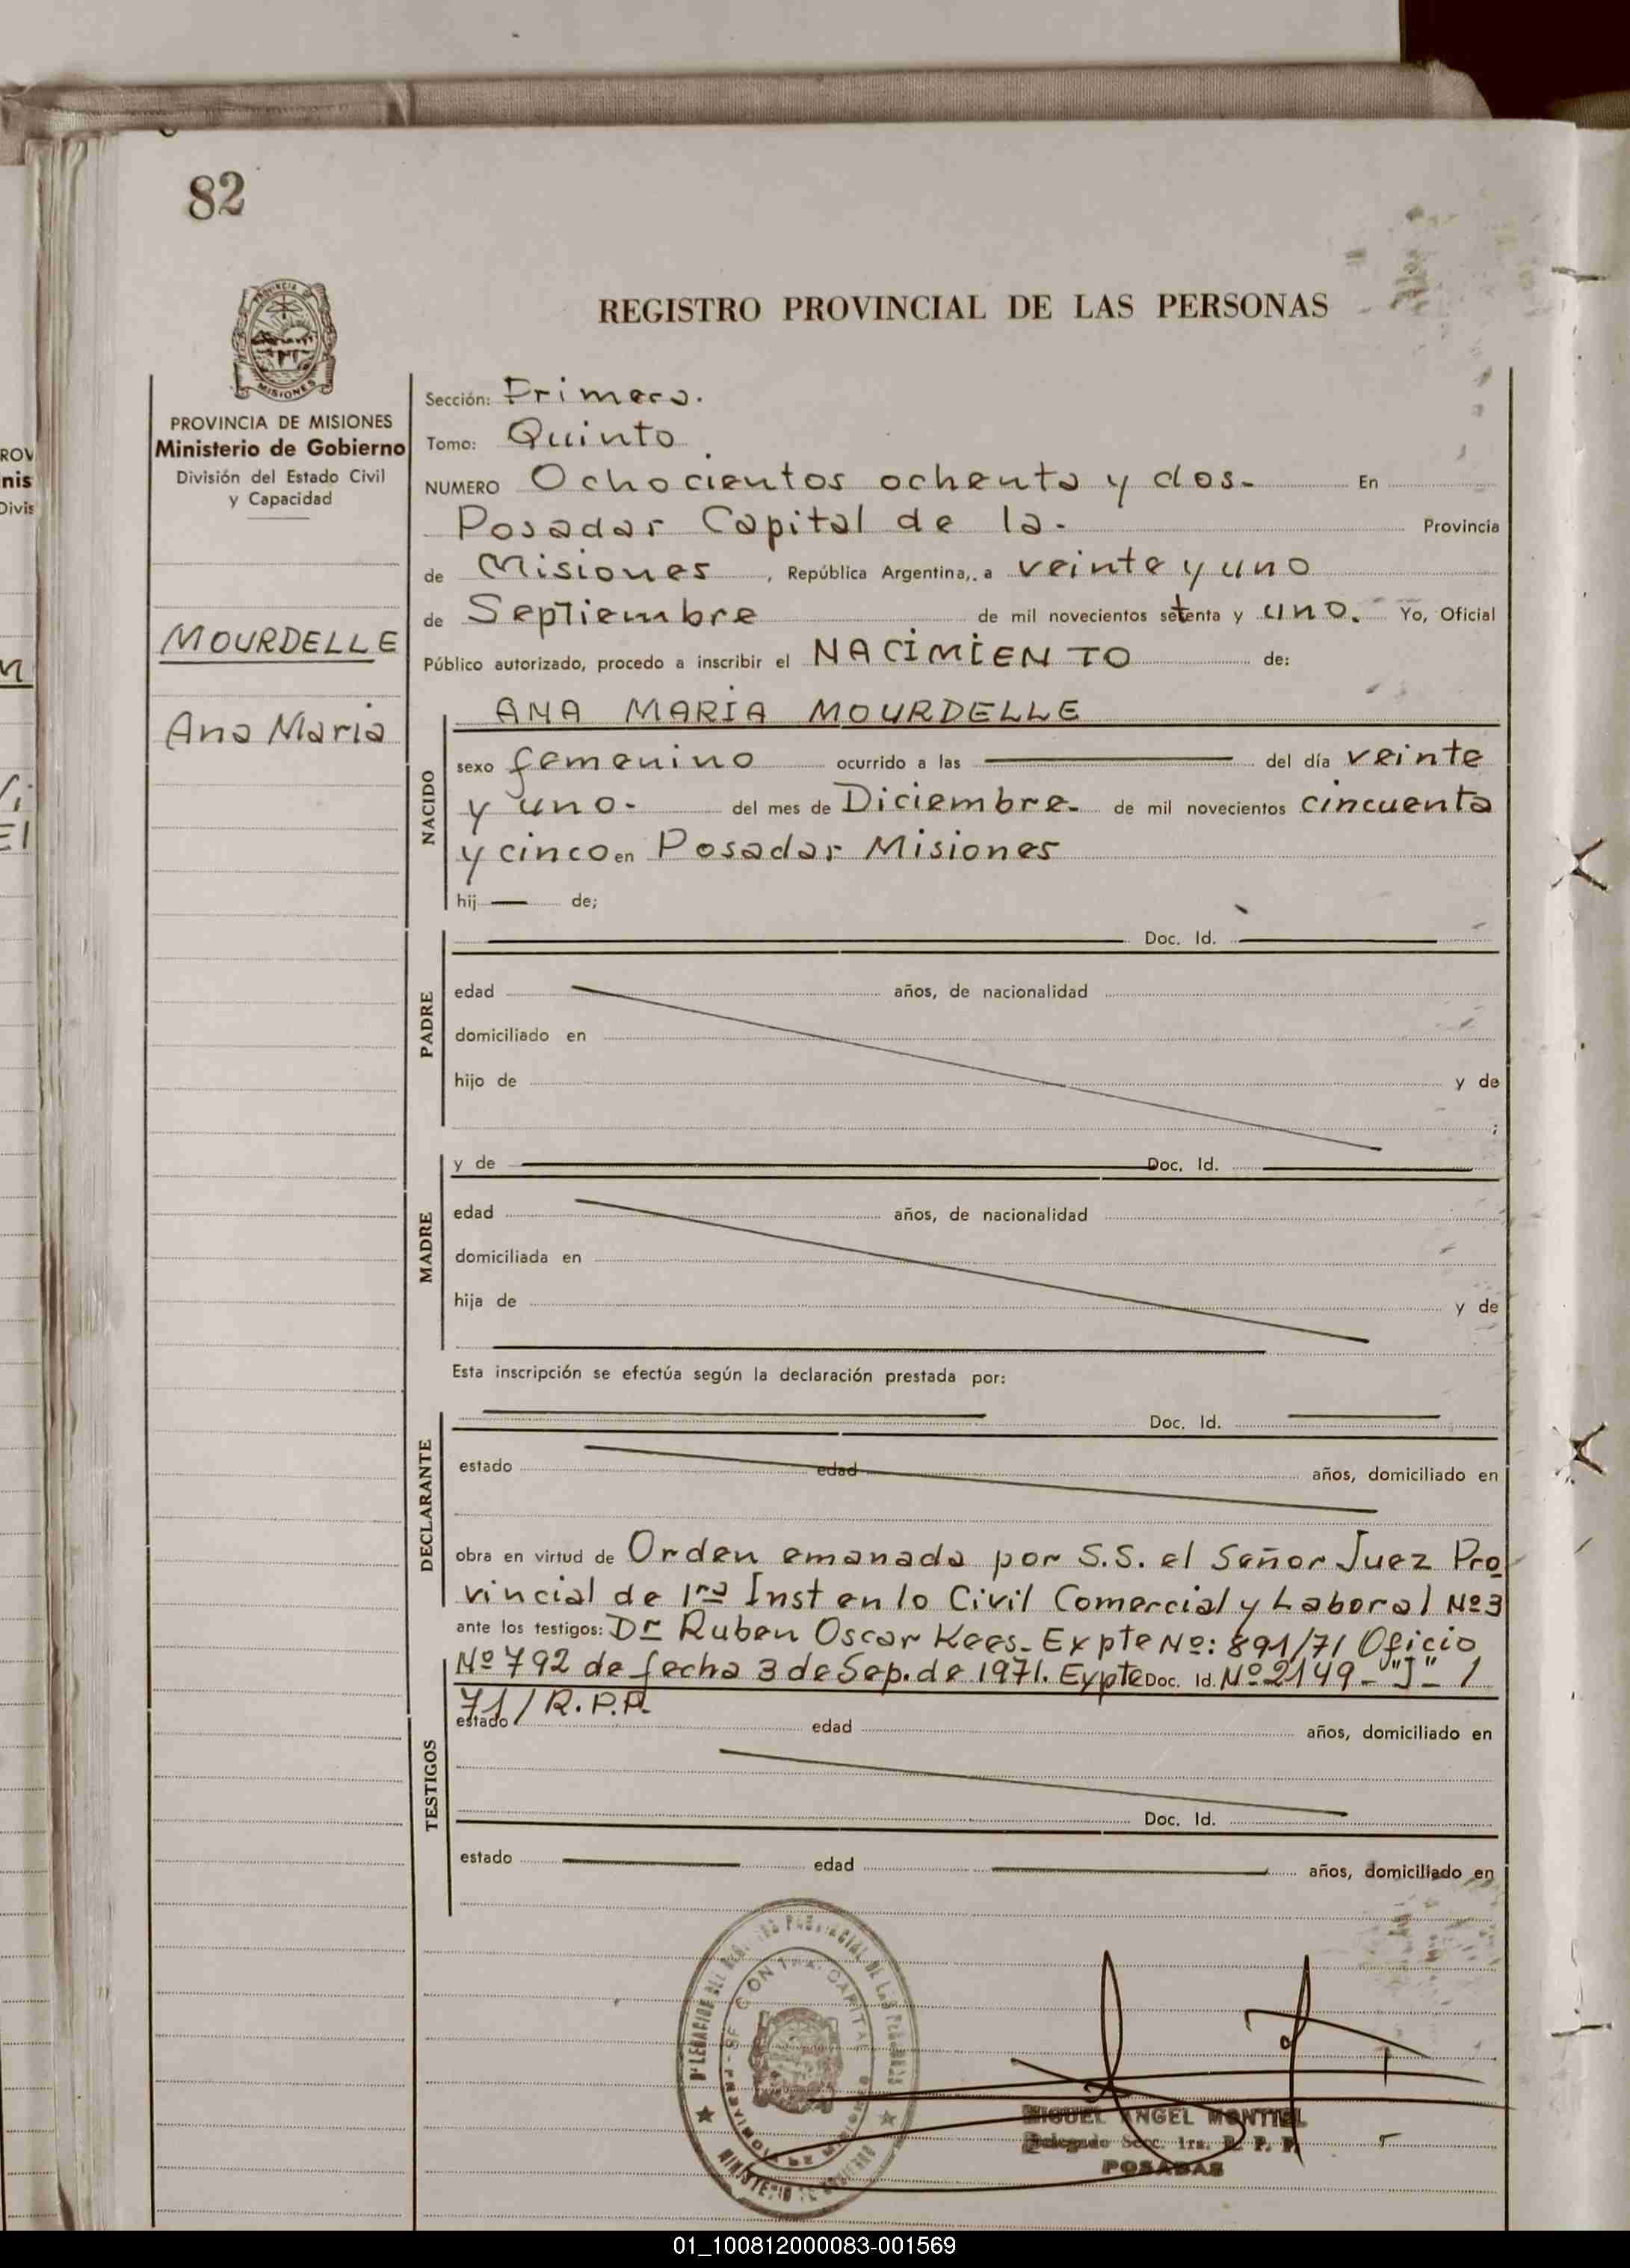 82
PROVINCIA DE
MISIONES
REGISTRO PROVINCIAL DE LAS PERSONAS
PROVINCIA DE MISIONES
Ministerio de Gobierno
División del Estado Civil
y Capacidad
MOURDELLE
Ana Maria
Sección: Primera.
Tomo: Quinto
NUMERO Ochocientos ochenta y dos- En
Posadas Capital de la - Provincia
de Misiones, República Argentina, a veinte y uno
de Septiembre de mil novecientos setenta y uno. Yo, Oficial
Público autorizado, procedo a inscribir el NACIMIENTO de:
ANA MARIA MOURDELLE
NACIDO
sexo femenino ocurrido a las del día veinte
y uno- del mes de Diciembre- de mil novecientos cincuenta
y cinco en Posadas Misiones
hij de;
Doc. Id.
PADRE
edad años, de nacionalidad
domiciliado en
hijo de y de
;
y de Doc. Id.
MADRE
edad años, de nacionalidad
domiciliada en
hija de y de
Esta inscripción se efectúa según la declaración prestada por:
Doc. Id.
DECLARANTE
estado edad años, domiciliado en
obra en virtud de Orden emanada por S.S. el Señor Juez Pro
vincial de 1ra Inst en lo Civil Comercial y Laboral Nº3
ante los testigos: Dr Ruben Oscar Kees- Expte Nº: 891/71 Oficio
Nº 792 de fecha 3 de Sep. de 1971. Expte Doc. Id. Nº 2149-"J"- /
71/R.P.P.
TESTIGOS
estado edad años, domiciliado en
Doc. Id.
estado edad años, domiciliado en
MIGUEL ANGEL MONTIEL
Delegado Secc. 1ra. R. P. P.
POSADAS
01_100812000083-001569